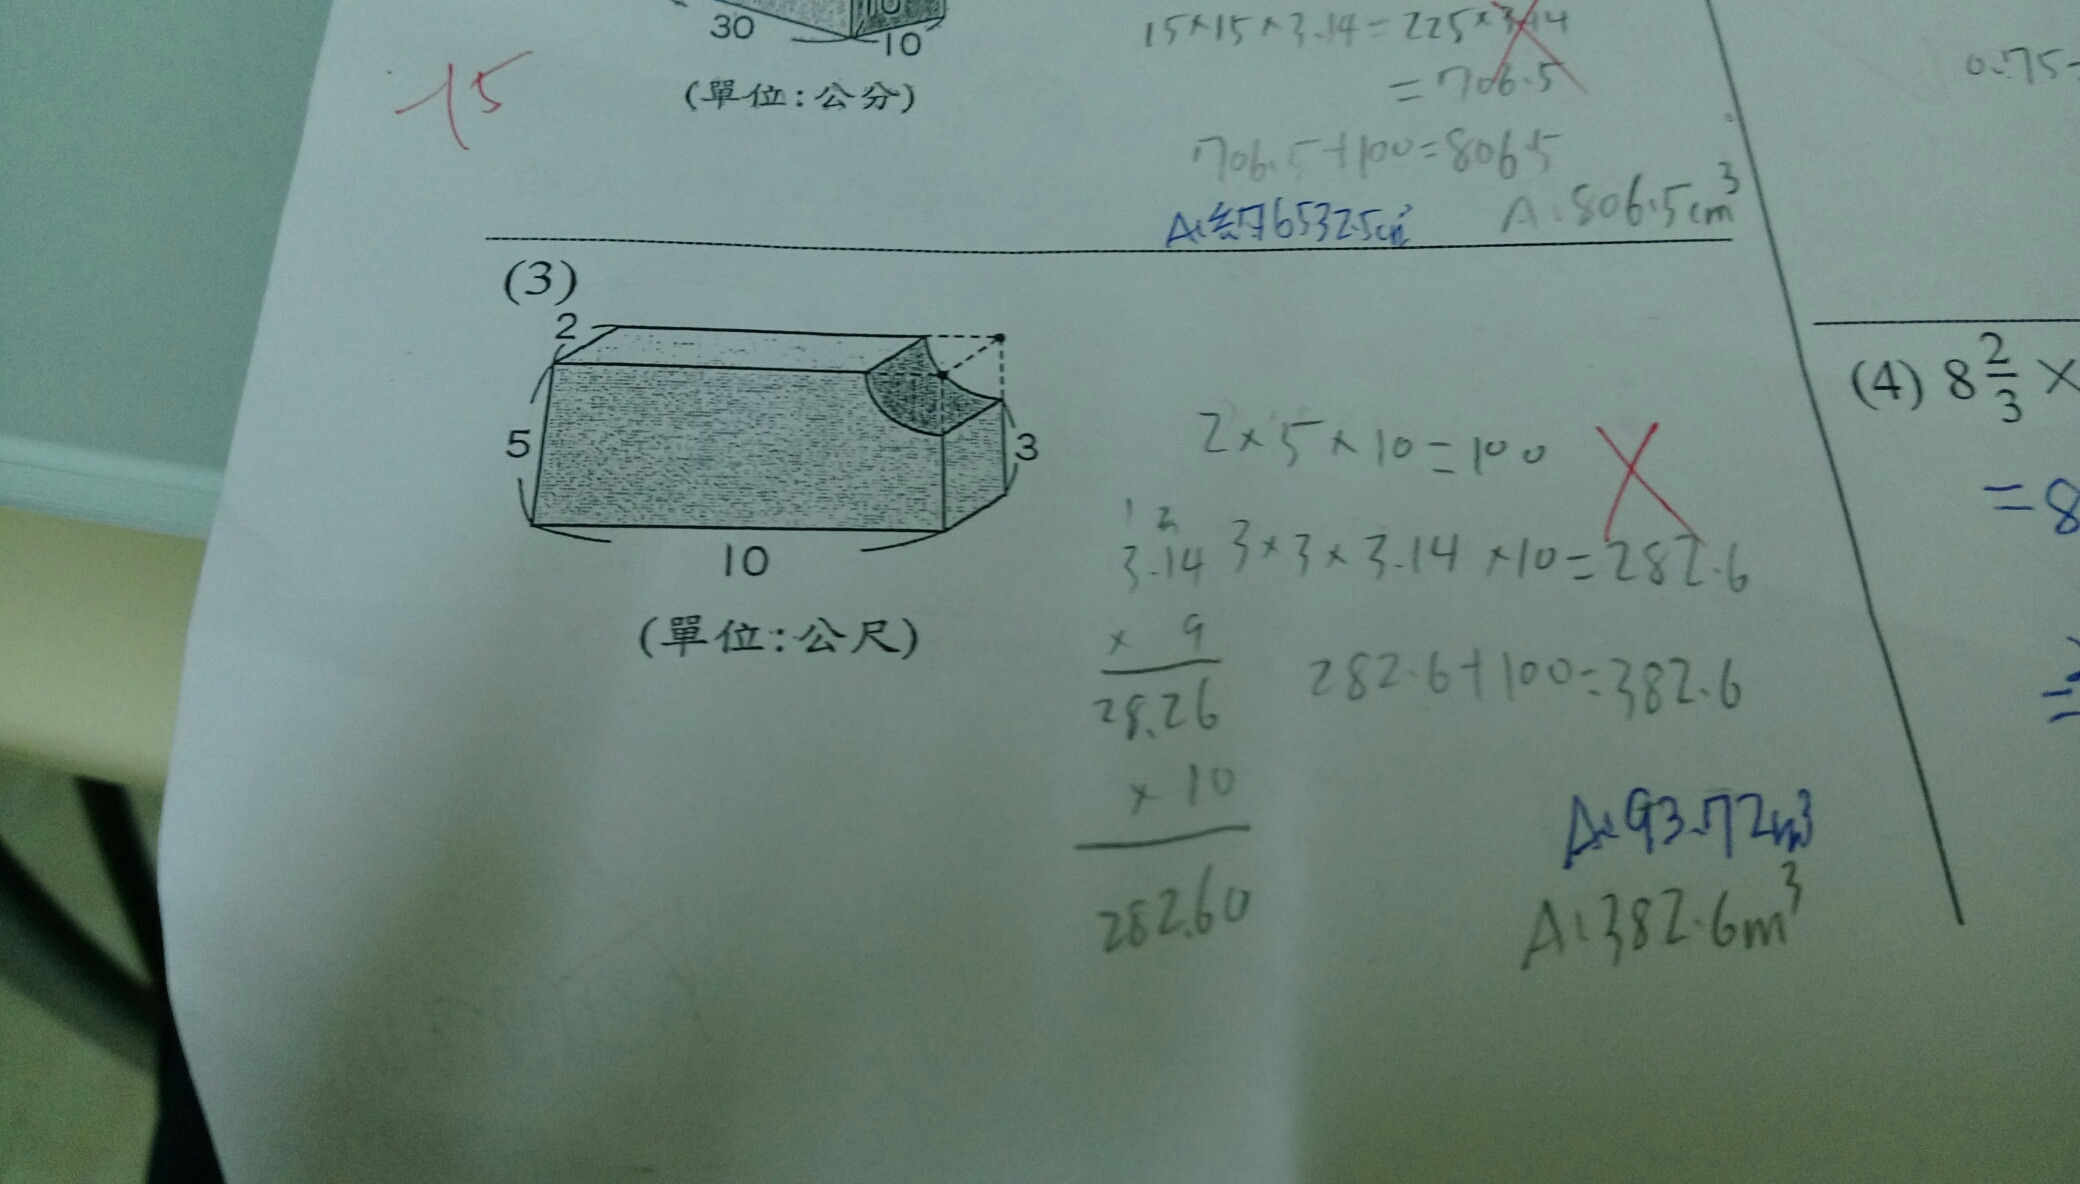 30
10
10
(單位:公分)
-15
15×15×3.14=225×3.14
=706.5
706.5+100=806.5
A:約65325cm³
A:806.5cm³
0.75-
(3)
2
5
3
10
(單位:公尺)
2×5×10=100
1 3
3.14
× 9
28.26
× 10
282.60
3×3×3.14×10=282.6
282.6+100=382.6
A:93.72m³
A:382.6m³
(4) 8 2/3 ×
=8
=